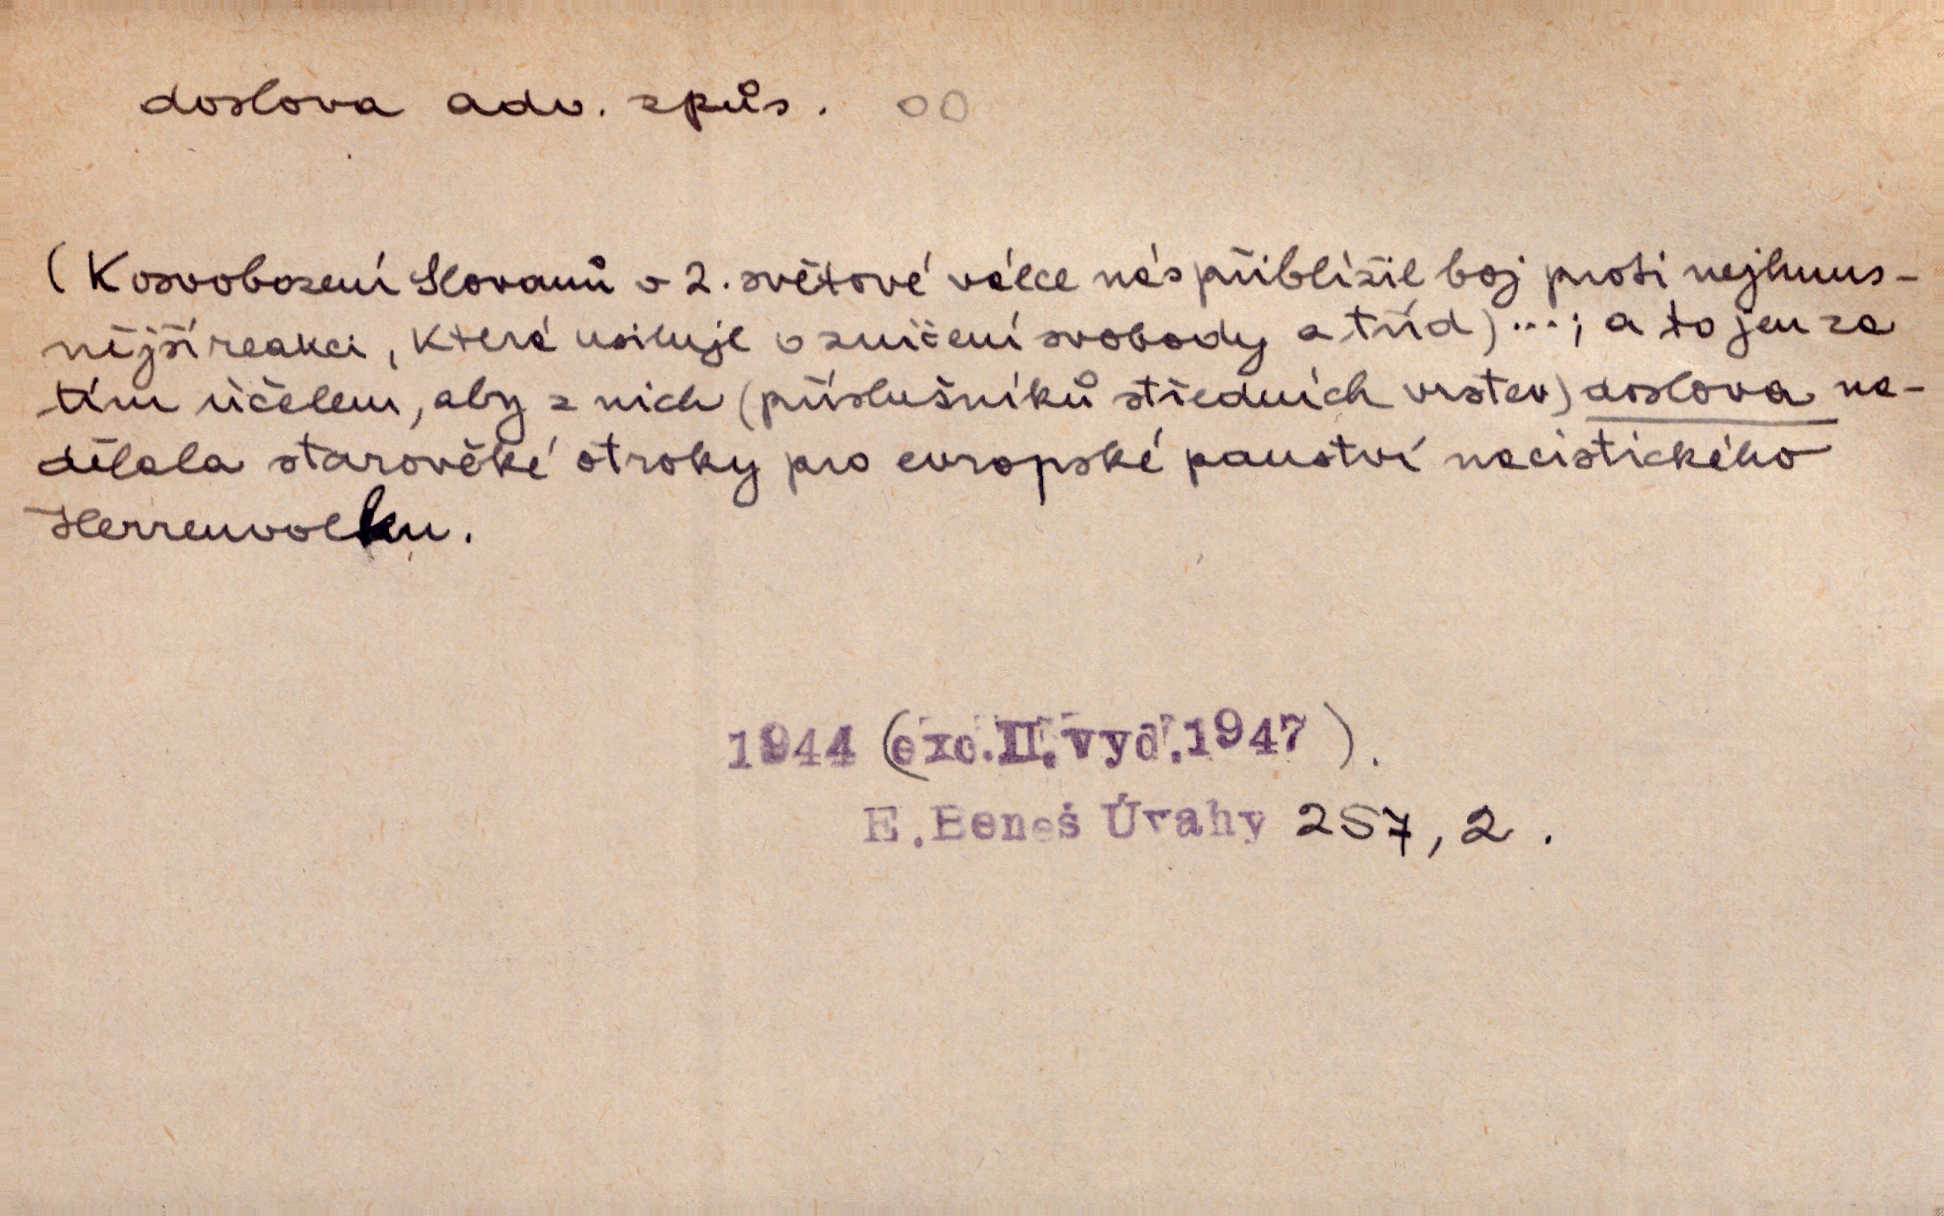 doslova adv. způs. oo
(K osvobození Slovanů v 2. světové válce nás přiblížil boj proti nejhnus-
nější reakci, která usiluje o zničení svobody a tříd)...; a to jen za
tím účelem, aby z nich (příslušníků středních vrstev) doslova na-
dělala starověké otroky pro evropské panství nacistického
Herrenvolku.
1944 (exc. II. vyd. 1947).
E. Beneš Úvahy 257, 2.